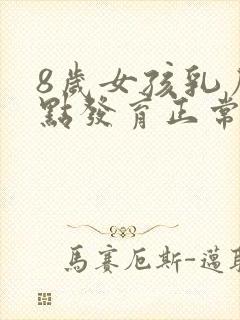 8歲女孩乳
點發育正常
馬賽厄斯-邁